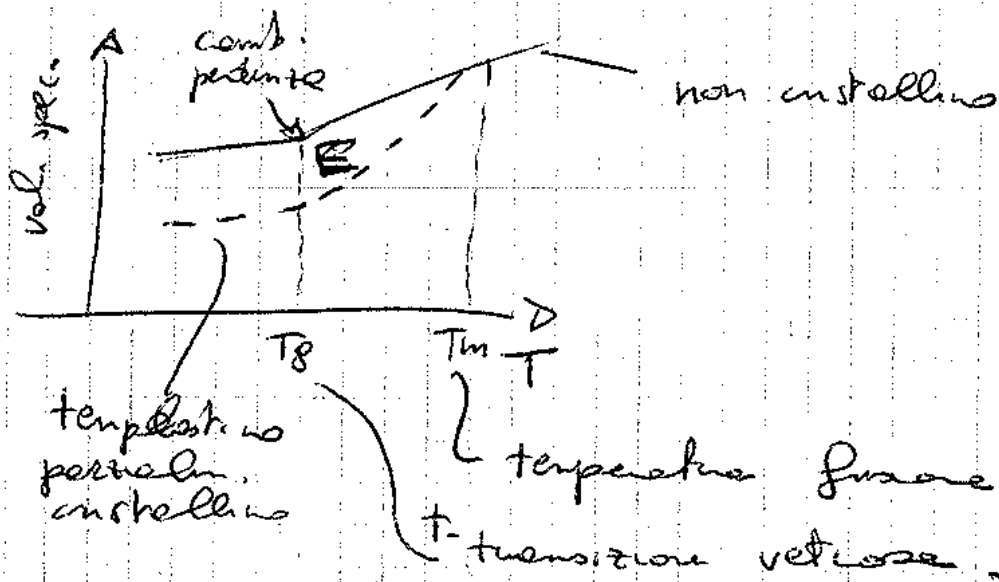 camb.
pendenza
vol. spec.
non cristallino
E
Tg
Tm
T
termoplastico
parzialm.
cristallino
temperatura fusione
t. transizione vetrosa.